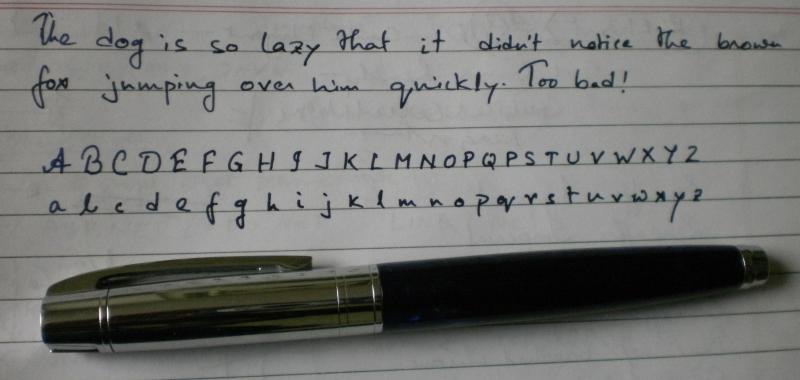 The dog is so lazy that it didn't notice the brown
fox jumping over him quickly. Too bad!
A B C D E F G H I J K L M N O P Q P S T U V W X Y Z
a b c d e f g h i j k l m n o p q r s t u v w x y z